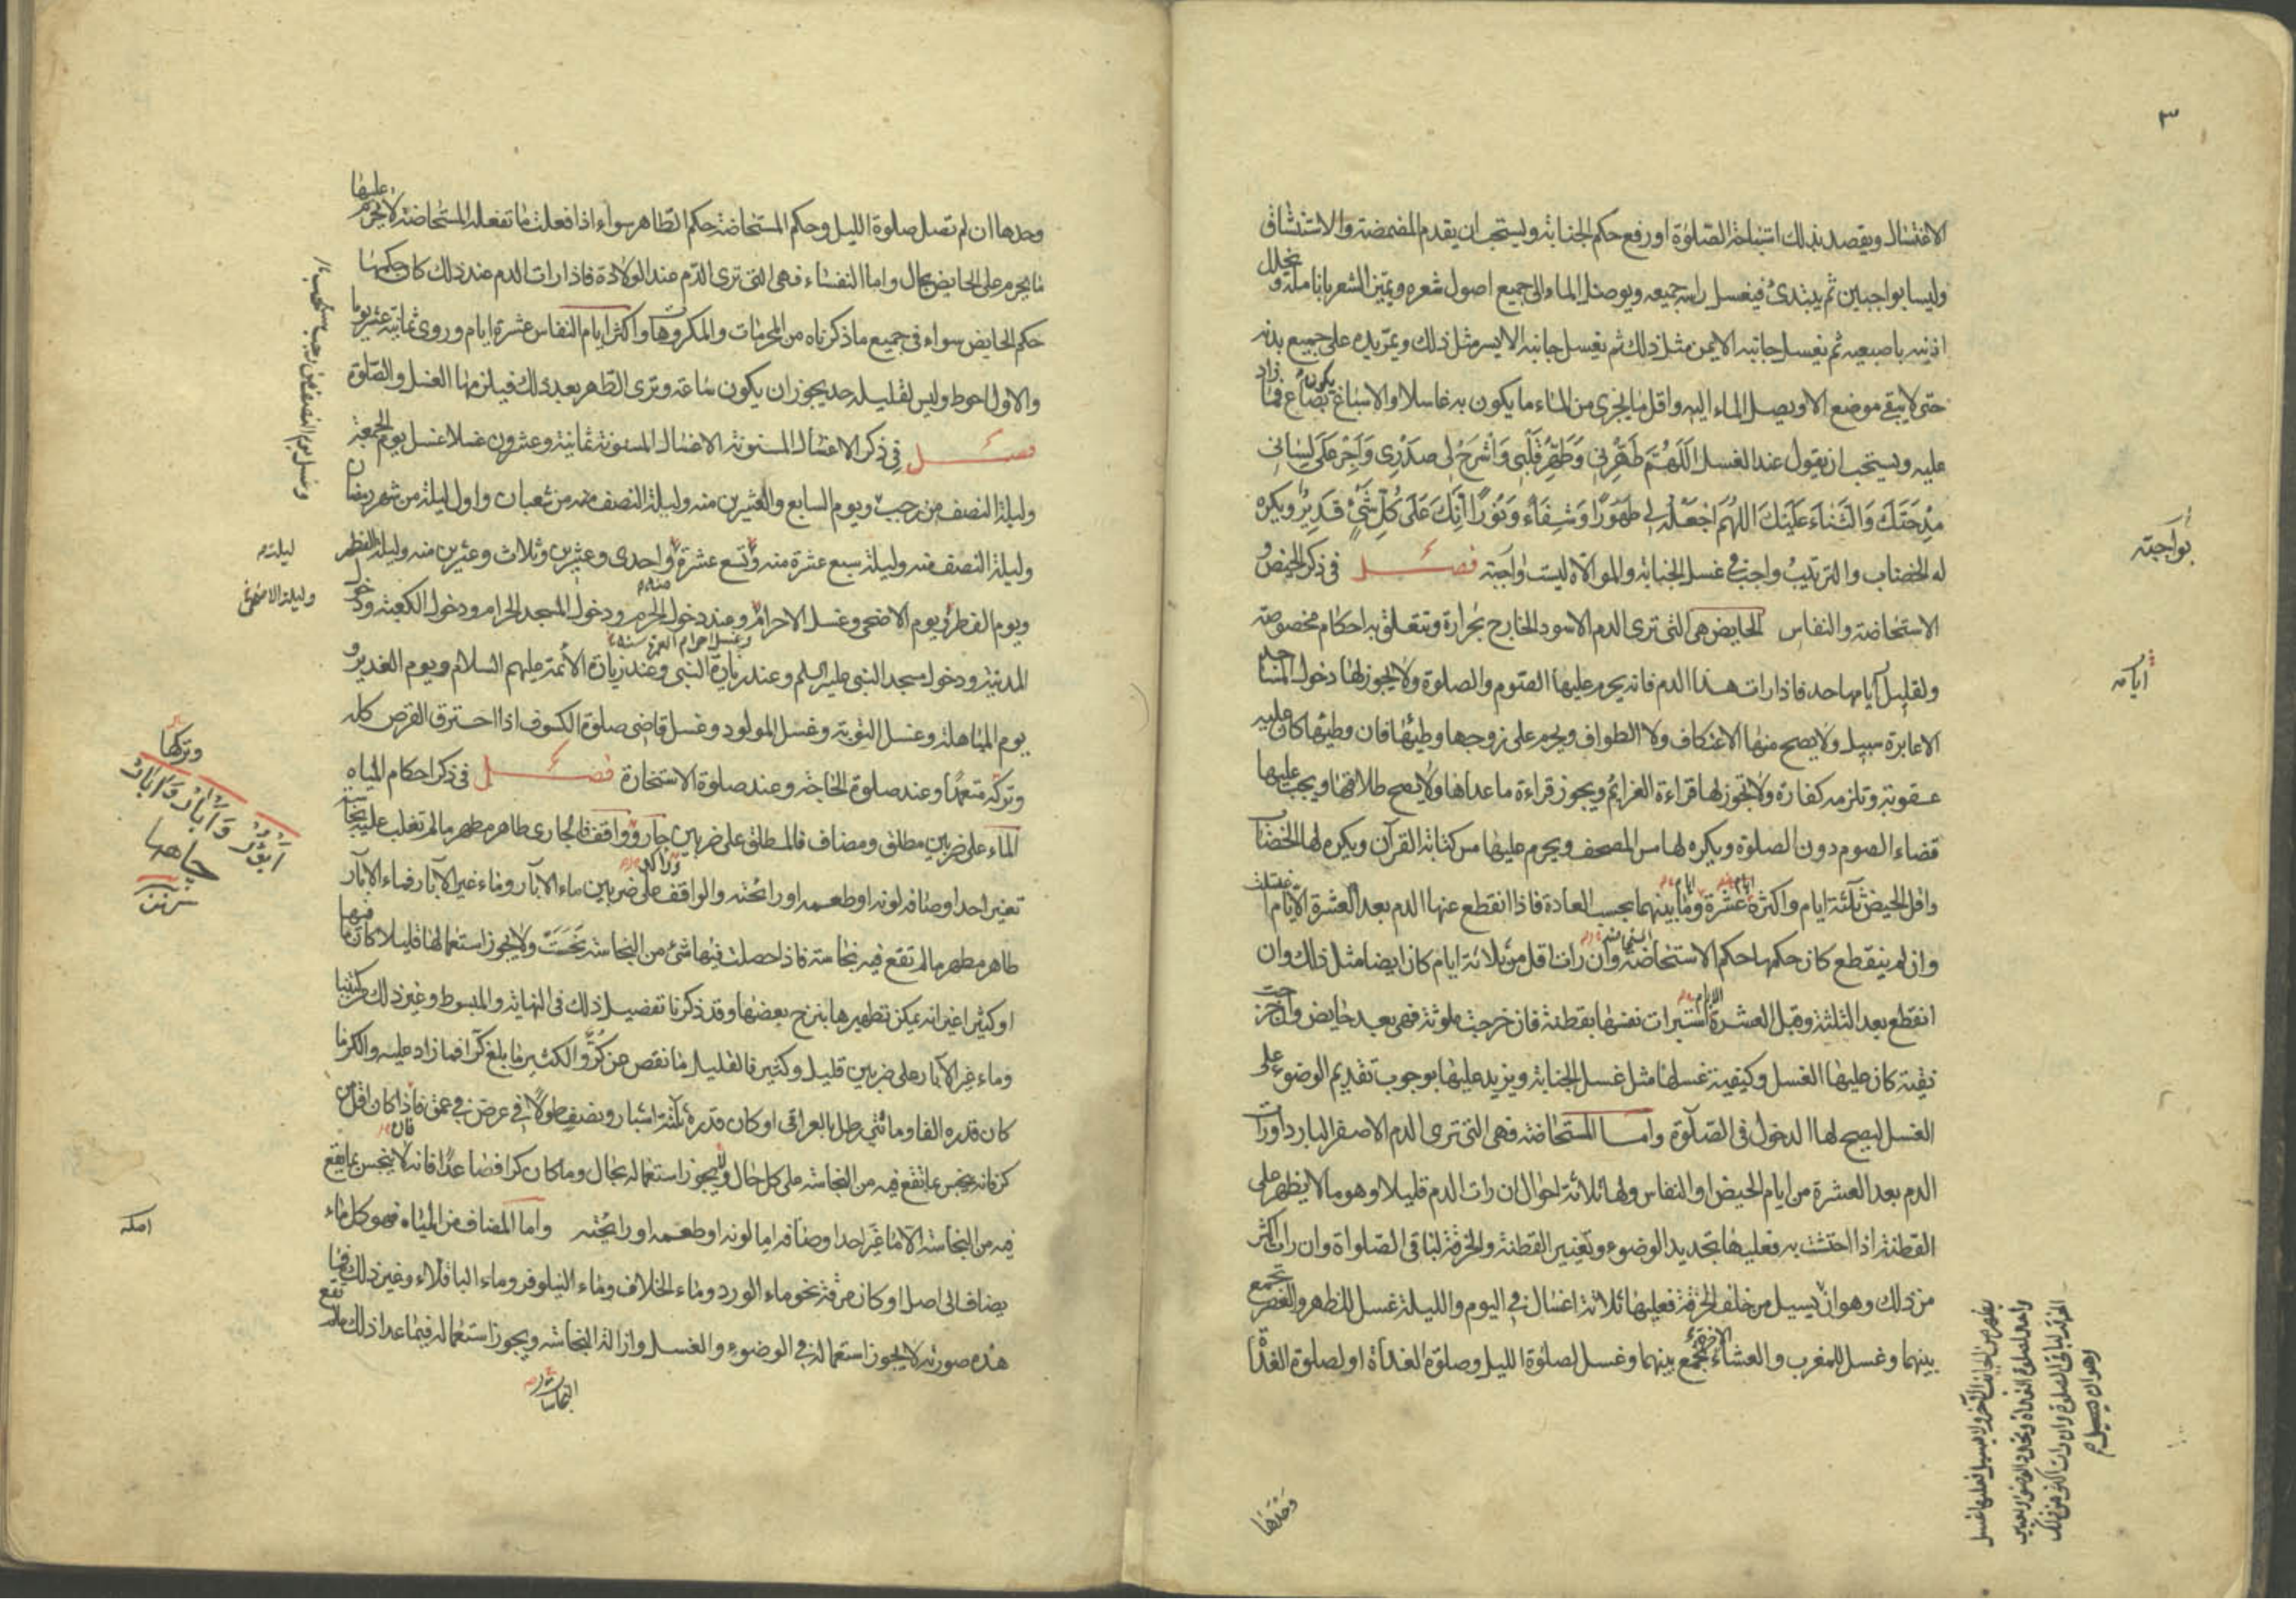 ٣
الاغتسال ويقصد بذلك استباحة الصلوة او رفع حكم الجنابة ويستحب ان يقدم المضمضة والاستنشاق
وليسا بواجبين ثم يبتدئ فيغسل راسه جميعه ويوصل الماء الى جميع اصول شعره ويميز الشعر بانامله ويخلل
اذنيه باصبعيه ثم يغسل جانبه الايمن مثل ذلك ثم يغسل جانبه الايسر مثل ذلك ويمر يده على جميع بدنه
حتى لا يبقى موضع الا ويصل الماء اليه واقل ما يجزى من الماء ما يكون به غاسلا والاسباغ يكون بصاع فما زاد
عليه ويستحب ان يقول عند الغسل اَللّهُمَّ طَهِّرْنِى وَطَهِّرْ قَلْبِى وَاشْرَحْ لِى صَدْرِى وَاَجْرِ عَلَى لِسَانِى
مِدْحَتَكَ وَالثَّنَاءَ عَلَيْكَ اللهُمَّ اجْعَلْهُ لِى طَهُورًا وَشِفَاءً وَنُورًا اِنَّكَ عَلَى كُلِّ شَىْءٍ قَدِيرٌ ويكره
له الخضاب والترتيب واجب فى غسل الجنابة والموالاة ليست واجبة فصل فى ذكر الحيض و
بواجبة
الاستحاضة والنفاس الحايض هى التى ترى الدم الاسود الخارج بحرارة وتتعلق به احكام مخصوصة
ولقليل ايامها حد فاذا رات هذا الدم فانه يحرم عليها الصوم والصلوة ولا يجوز لها دخول المساجد
ايامه
الا عابرة سبيل ولا يصح منها الاعتكاف ولا الطواف ويحرم على زوجها وطئها فان وطئها كان عليه
عقوبة وتلزمه كفارة ولا يجوز لها قراءة العزائم ويجوز قراءة ما عداها ولا يصح طلاقها ويجب عليها
قضاء الصوم دون الصلوة ويكره لها مس المصحف ويحرم عليها مس كتابة القرآن ويكره لها الخضاب
واقل الحيض ثلثة ايام واكثره عشرة ايام وما بينهما بحسب العادة فاذا انقطع عنها الدم بعد العشرة الايام اغتسلت
وان لم ينقطع كان حكمها حكم الاستحاضة وان رات اقل من ثلاثة ايام كان ايضا مثل ذلك وان
انقطع بعد الثلثة وقبل العشرة الايام استبرات نفسها بقطنة فان خرجت ملوثة فهى بعد حايض وان خرجت
نقية كان عليها الغسل وكيفية غسلها مثل غسل الجنابة ويزيد عليها بوجوب تقديم الوضوء على
الغسل ليصح لها الدخول فى الصلوة واما المستحاضة فهى التى ترى الدم الاصفر البارد او رات
الدم بعد العشرة من ايام الحيض او النفاس ولها ثلاثة احوال ان رات الدم قليلا وهو ما لا يظهر على
القطنة اذا احتشت به فعليها تجديد الوضوء وتغيير القطنة والخرقة لباقى الصلواة وان رات اكثر
من ذلك وهو ان يسيل من خلف الخرقة فعليها ثلاثة اغسال فى اليوم والليلة غسل للظهر والعصر تجمع
بينهما وغسل للمغرب والعشاء الاخرة تجمع بينهما وغسل لصلوة الليل وصلوة الغداة او لصلوة الغداة
وحدها
وحدها ان لم تصل صلوة الليل وحكم المستحاضة حكم الطاهر سواء اذا فعلت ما تفعله المستحاضة لا يحرم عليها
ما يحرم على الحايض بحال واما النفساء فهى التى ترى الدم عند الولادة فاذا رات الدم عند ذلك كان حكمها
حكم الحايض سواء فى جميع ما ذكرناه من المحرمات والمكروهات واكثر ايام النفاس عشرة ايام وروى ثمانية عشر يوما
والاول احوط وليس لقليله حد يجوز ان يكون ساعة وترى الطهر بعد ذلك فيلزمها الغسل والصلوة
فصل فى ذكر الاغسال المسنونة الاغسال المسنونة ثمانية وعشرون غسلا غسل يوم الجمعة
وليلة النصف من رجب ويوم السابع والعشرين منه وليلة النصف من شعبان واول ليلة من شهر رمضان
وليلة النصف منه وليلة سبع عشرة منه وتسع عشرة واحدى وعشرين وثلاث وعشرين منه وليلة الفطر
ليلة
ويوم الفطر ويوم الاضحى وغسل الاحرام وعند دخول الحرم ودخول المسجد الحرام ودخول الكعبة ودخول
وليلة الاضحى
المدينة ودخول مسجد النبى عليه السلم وعند زيارة النبى وعند زيارة الأئمة عليهم السلام ويوم الغدير و
يوم المباهلة وغسل التوبة وغسل المولود وغسل قاضى صلوة الكسوف اذا احترق القرص كله
وتركه متعمدا وعند صلوة الحاجة وعند صلوة الاستخارة فصل فى ذكر احكام المياه
وتركها
الماء على ضربين مطلق ومضاف فالمطلق على ضربين جار وواقف فالجارى طاهر مطهر ما لم تغلب عليه نجاسة
تغير احد اوصافه لونه او طعمه او رائحته والواقف على ضربين ماء الابآر وماء غير الآبار فماء الآبار
طاهر مطهر ما لم تقع فيه نجاسة فاذا حصلت فيها شئ من النجاسة نجست ولا يجوز استعمالها قليلا كان ما فيها
او كثيرا غير انه يمكن تطهيرها بنزح بعضها وقد ذكرنا تفصيل ذلك فى النهاية والمبسوط وغير ذلك من كتبنا
وماء غير الآبار على ضربين قليل وكثير فالقليل ما نقص عن كر والكثير ما بلغ كرا فما زاد عليه والكر ما
كان قدره الفا ومائتى رطل بالعراقى او كان قدره ثلثة اشبار ونصف طولا فى عرض فى عمق فاذا كان اقل من
كر فانه ينجس بما تقع فيه من النجاسة على كل حال ولا يجوز استعماله بحال وما كان كرا فصاعدا فانه لا ينجس بما يقع
فيه من النجاسة الا ما غير احد اوصافه اما لونه او طعمه او رايحته واما المضاف من المياه فهو كل ماء
يضاف الى اصل او كان مرقة نحو ماء الورد وماء الخلاف وماء النيلوفر وماء الباقلاء وغير ذلك فما
هذه صورته لا يجوز استعماله فى الوضوء والغسل وازالة النجاسة ويجوز استعماله فيما عدا ذلك ما لم تقع